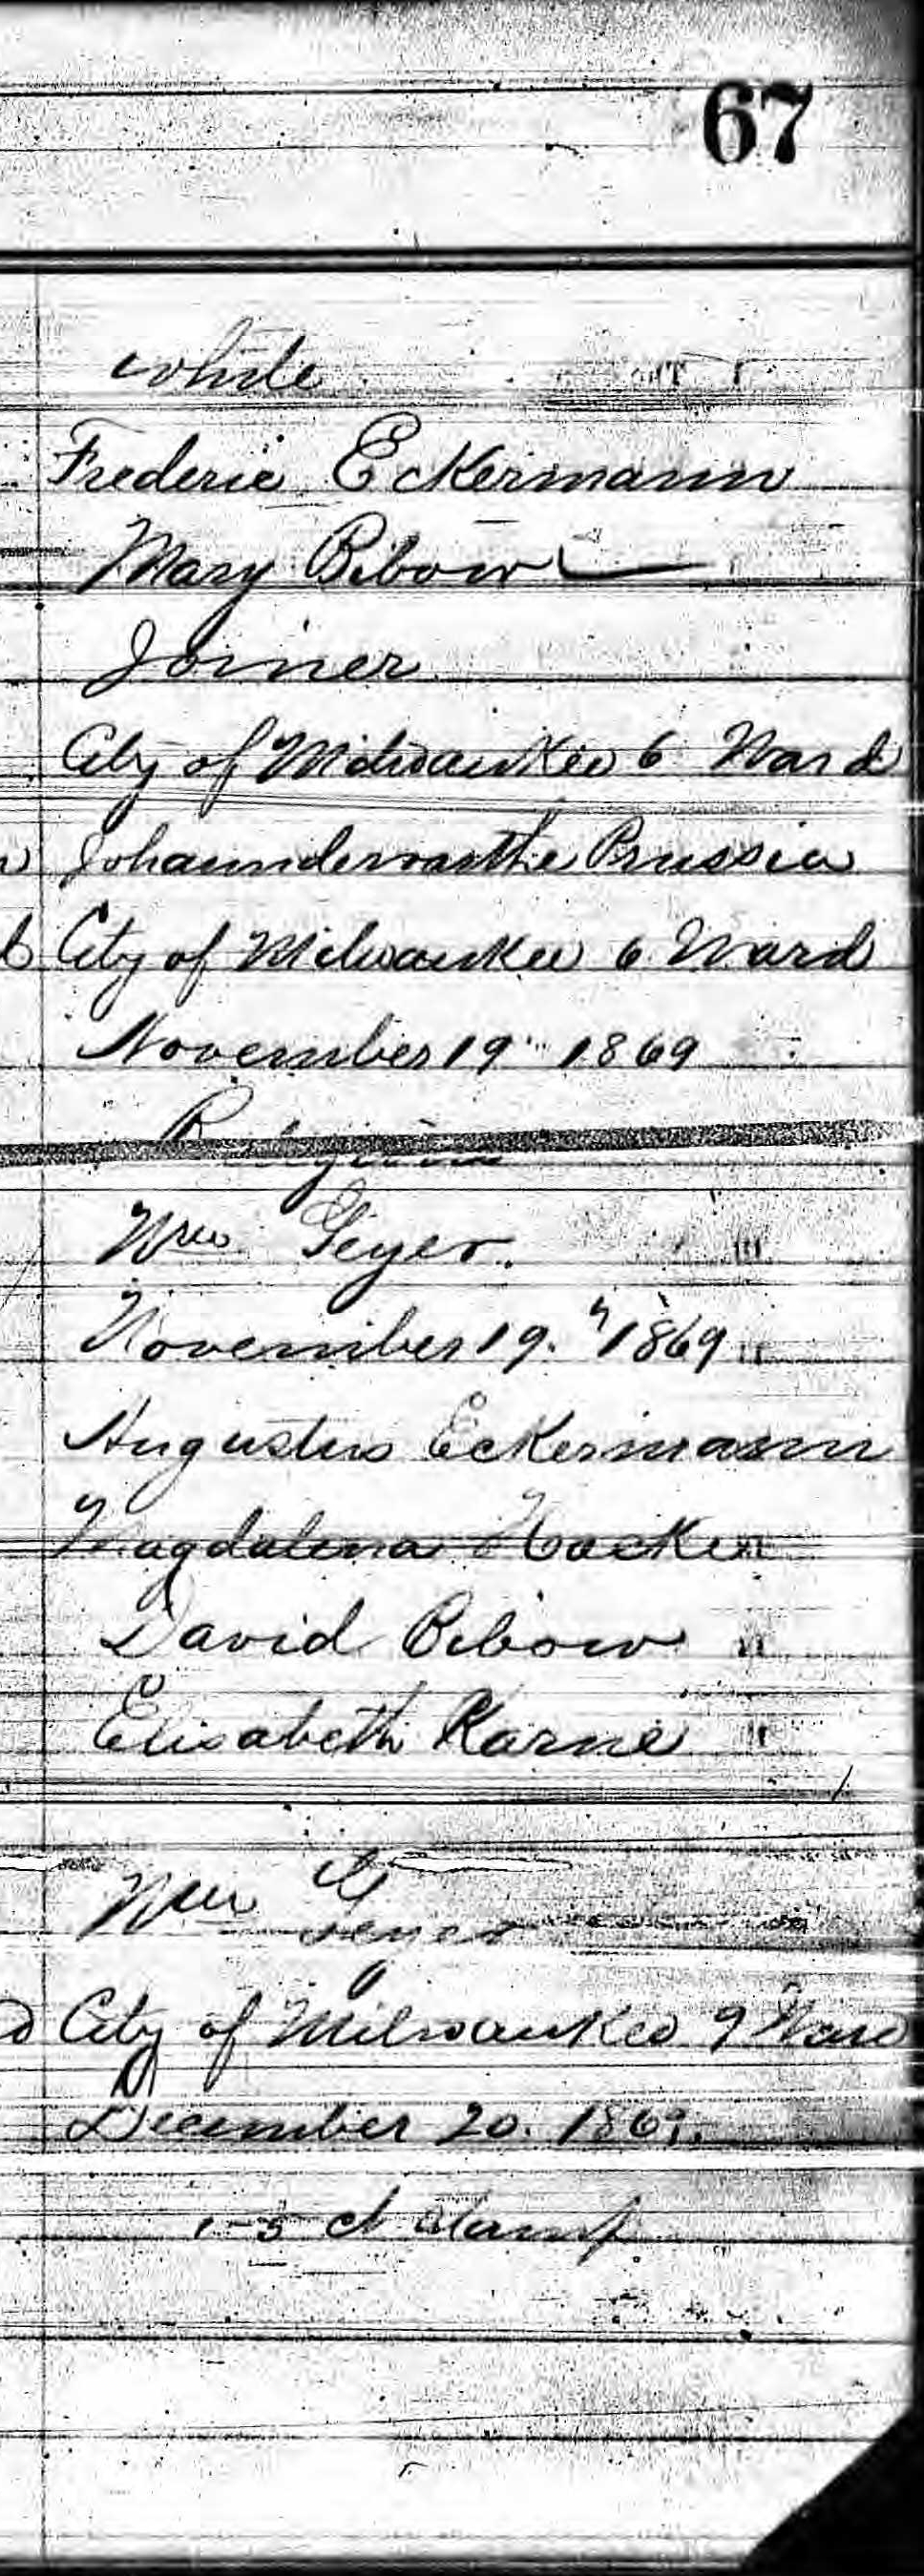 67
white
Frederic Eckermann
Mary Bibow
Joiner
City of Milwaukee 6 Ward
Johannderwarthe Prussia
City of Milwaukee 6 Ward
November 19" 1869
Religious
Wm Geyer.
November 19. " 1869
Augustus Eckermann
Magdalena Hacker
David Bibow
Elisabeth Karne
Wm Geyer
City of Milwaukee 9 Ward
December 20. 1869.
1-5 ct Stamp